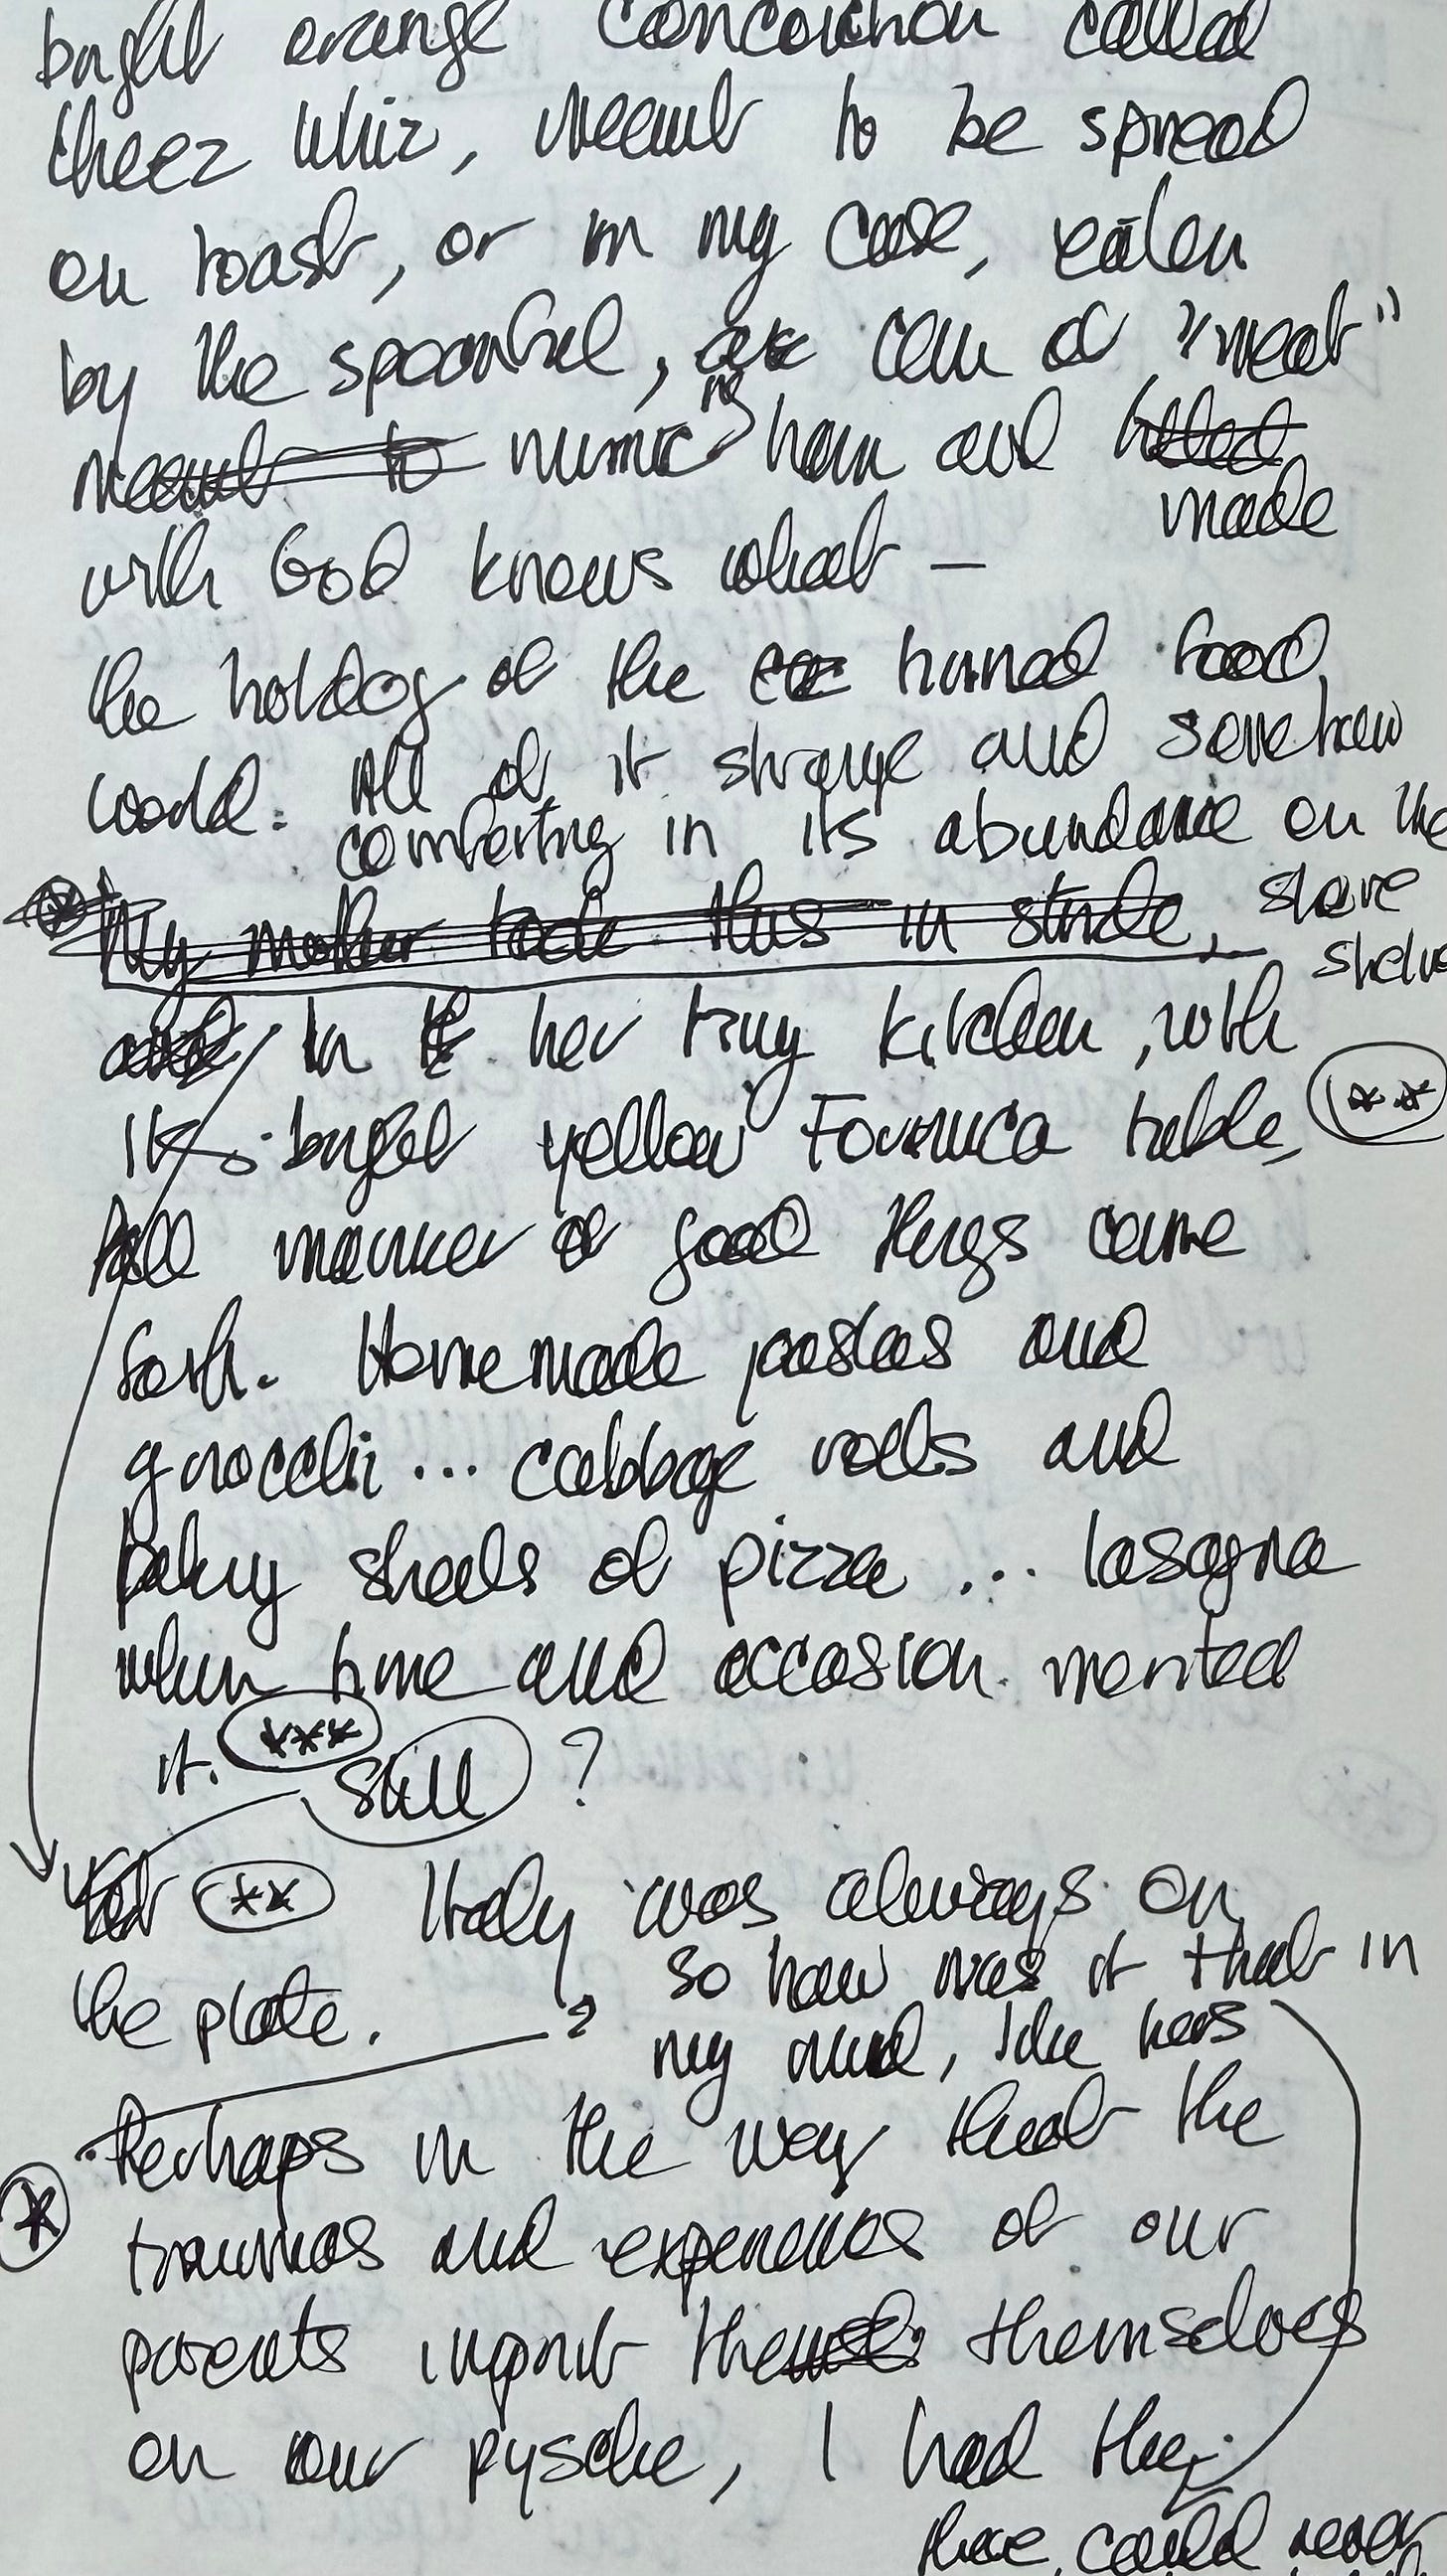 bright orange concoction called
Cheez Whiz, meant to be spread
on toast, or in my case, eaten
by the spoonful, a can of "meat"
meant to mimicing ham and
made
with God knows what —
the hotdog of the tinned food
world. All of it strange and somehow
comforting in its abundance on the
My mother took this in stride, store
shelves
and In her tiny kitchen, with
its bright yellow Formica table, **
all manner of good things came
forth. Homemade pastas and
gnocchi ... cabbage rolls and
bakery sheets of pizza ... lasagna
when time and occasion merited
it. ***
still ?
Yet ** Italy was always on
the plate. ? so how was it that in
my mind, like hers
* Perhaps in the way that the
traumas and experiences of our
parents imprint themselves
on our pysche, I had the
there could never